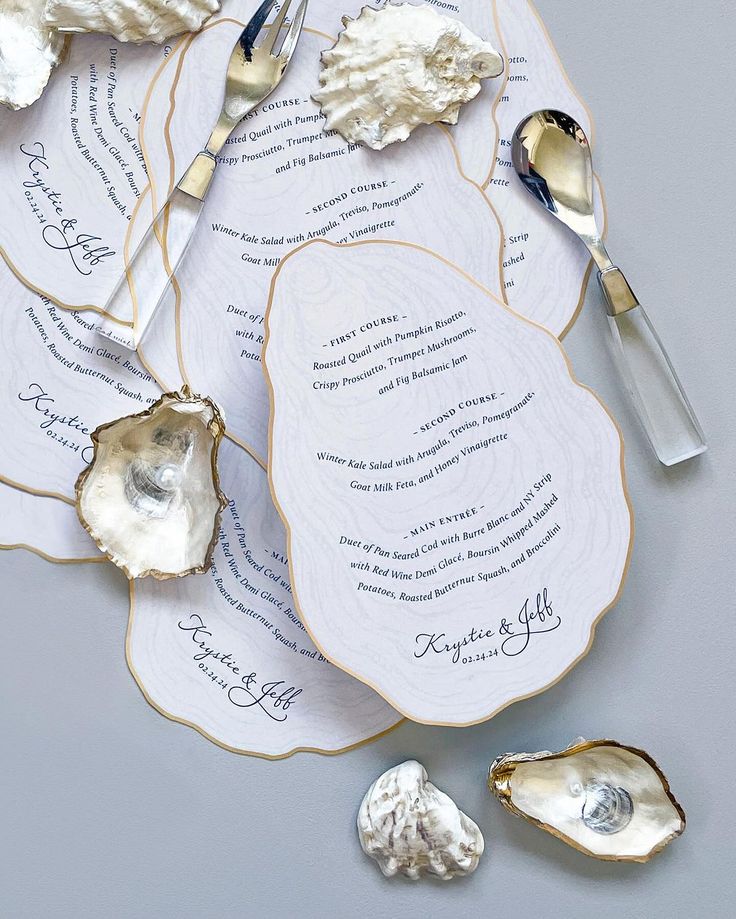 – FIRST COURSE –
Roasted Quail with Pumpkin Risotto,
Crispy Prosciutto, Trumpet Mushrooms,
and Fig Balsamic Jam
– SECOND COURSE –
Winter Kale Salad with Arugula, Treviso, Pomegranate,
Goat Milk Feta, and Honey Vinaigrette
– MAIN ENTRÉE –
Duet of Pan Seared Cod with Burre Blanc and NY Strip
with Red Wine Demi Glacé, Boursin Whipped Mashed
Potatoes, Roasted Butternut Squash, and Broccolini
Krystie & Jeff
02.24.24
Duet of Pan Seared Cod
with Red Wine Demi Glacé,
Potatoes, Roasted Butternut Squash
Krystie & Jeff
02.24.24
COURSE –
Roasted Quail with Pumpk
Crispy Prosciutto, Trumpet
and Fig Balsamic
– SECOND COURSE –
Winter Kale Salad with Arugula, Treviso, Pomegranate,
Goat Milk
Vinaigrette
Duet of
with Re
Pot
Mushrooms,
Strip
ashed
with Red Wine Demi Glacé, Boursin
Potatoes, Roasted Butternut Squash
Krystie
02.24
– MA
Duet of Pan Seared Cod
with Red Wine Demi Glacé,
Potatoes, Roasted Butternut Squash, and Br
Krystie & Jeff
02.24.24